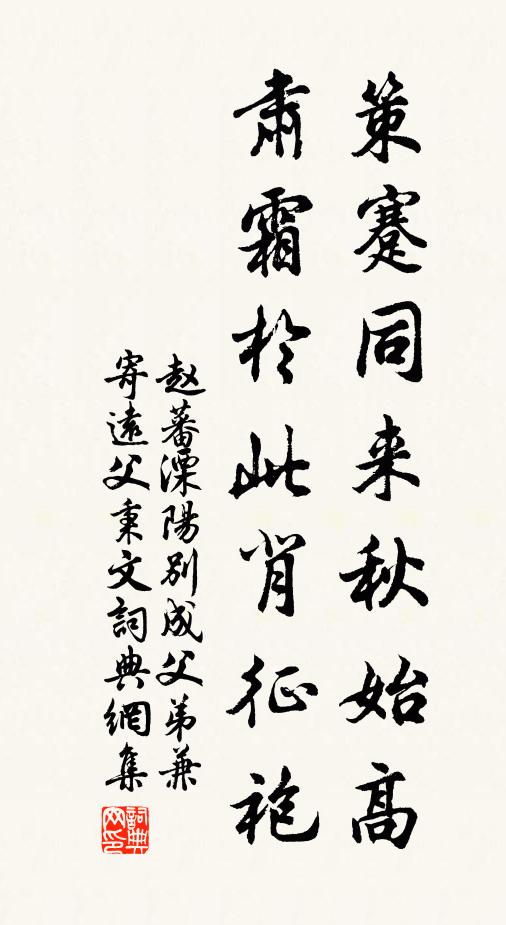 策蹇同来秋始高
肃霜於此背征袍
赵蕃溧陽別成父弟兼
寄遠父秉文詞典網集
詞典
网印